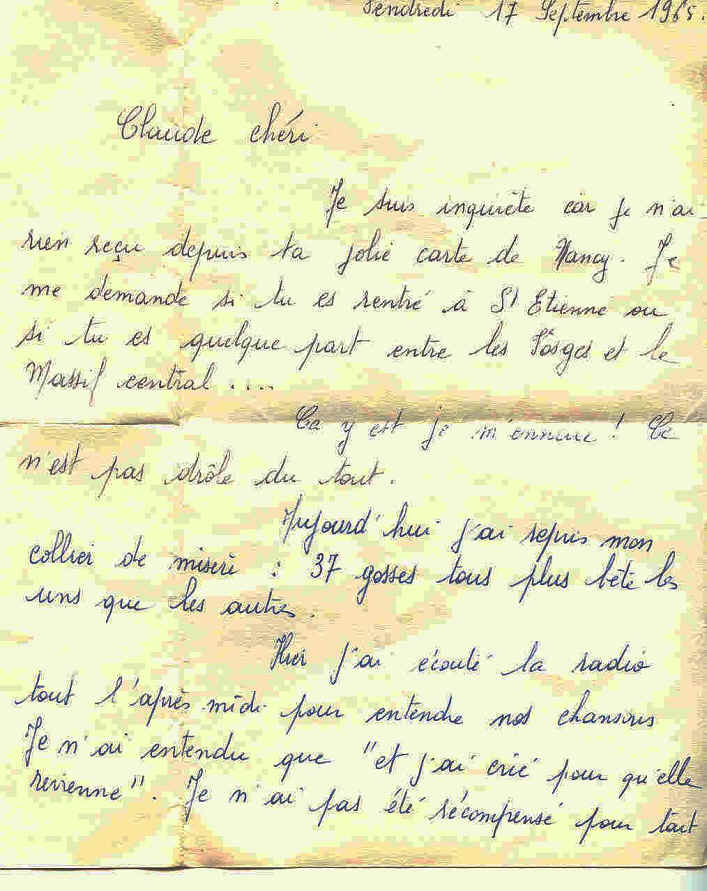 Vendredi 17 Septembre 1965.
Claude chéri
Je suis inquiète car je n'ai
rien reçu depuis ta jolie carte de Nancy. Je
me demande si tu es rentré à St Etienne ou
si tu es quelque part entre les Vosges et le
Massif central ....
Ca y est je m'ennuie ! Ce
n'est pas drôle du tout.
Aujourd'hui j'ai repris mon
collier de misère : 37 gosses tous plus bête les
uns que les autres.
Hier j'ai écouté la radio
tout l'après midi pour entendre nos chansons
Je n'ai entendu que "et j'ai crié pour qu'elle
revienne". Je n'ai pas été récompensé pour tout